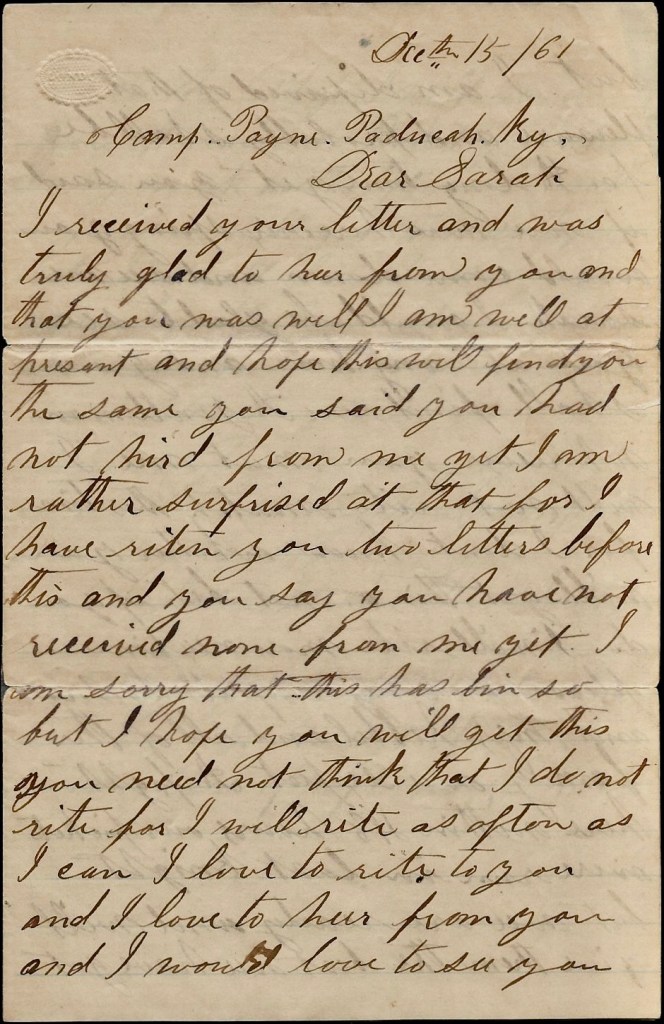 Decth 15/61
Camp. Payne. Paducah. Ky.
Dear Sarah
I received your letter and was
truly glad to heer from you and
that you was well I am well at
present and hope this will find you
the same you said you had
not hird from me yet I am
rather surprised at that for I
have riten you two letters before
this and you say you have not
received none from me yet. I
am sorry that this has bin so
but I hope you will get this
you need not think that I do not
rite for I will rite as often as
I can I love to rite to you
and I love to heer from you
and I would love to see you